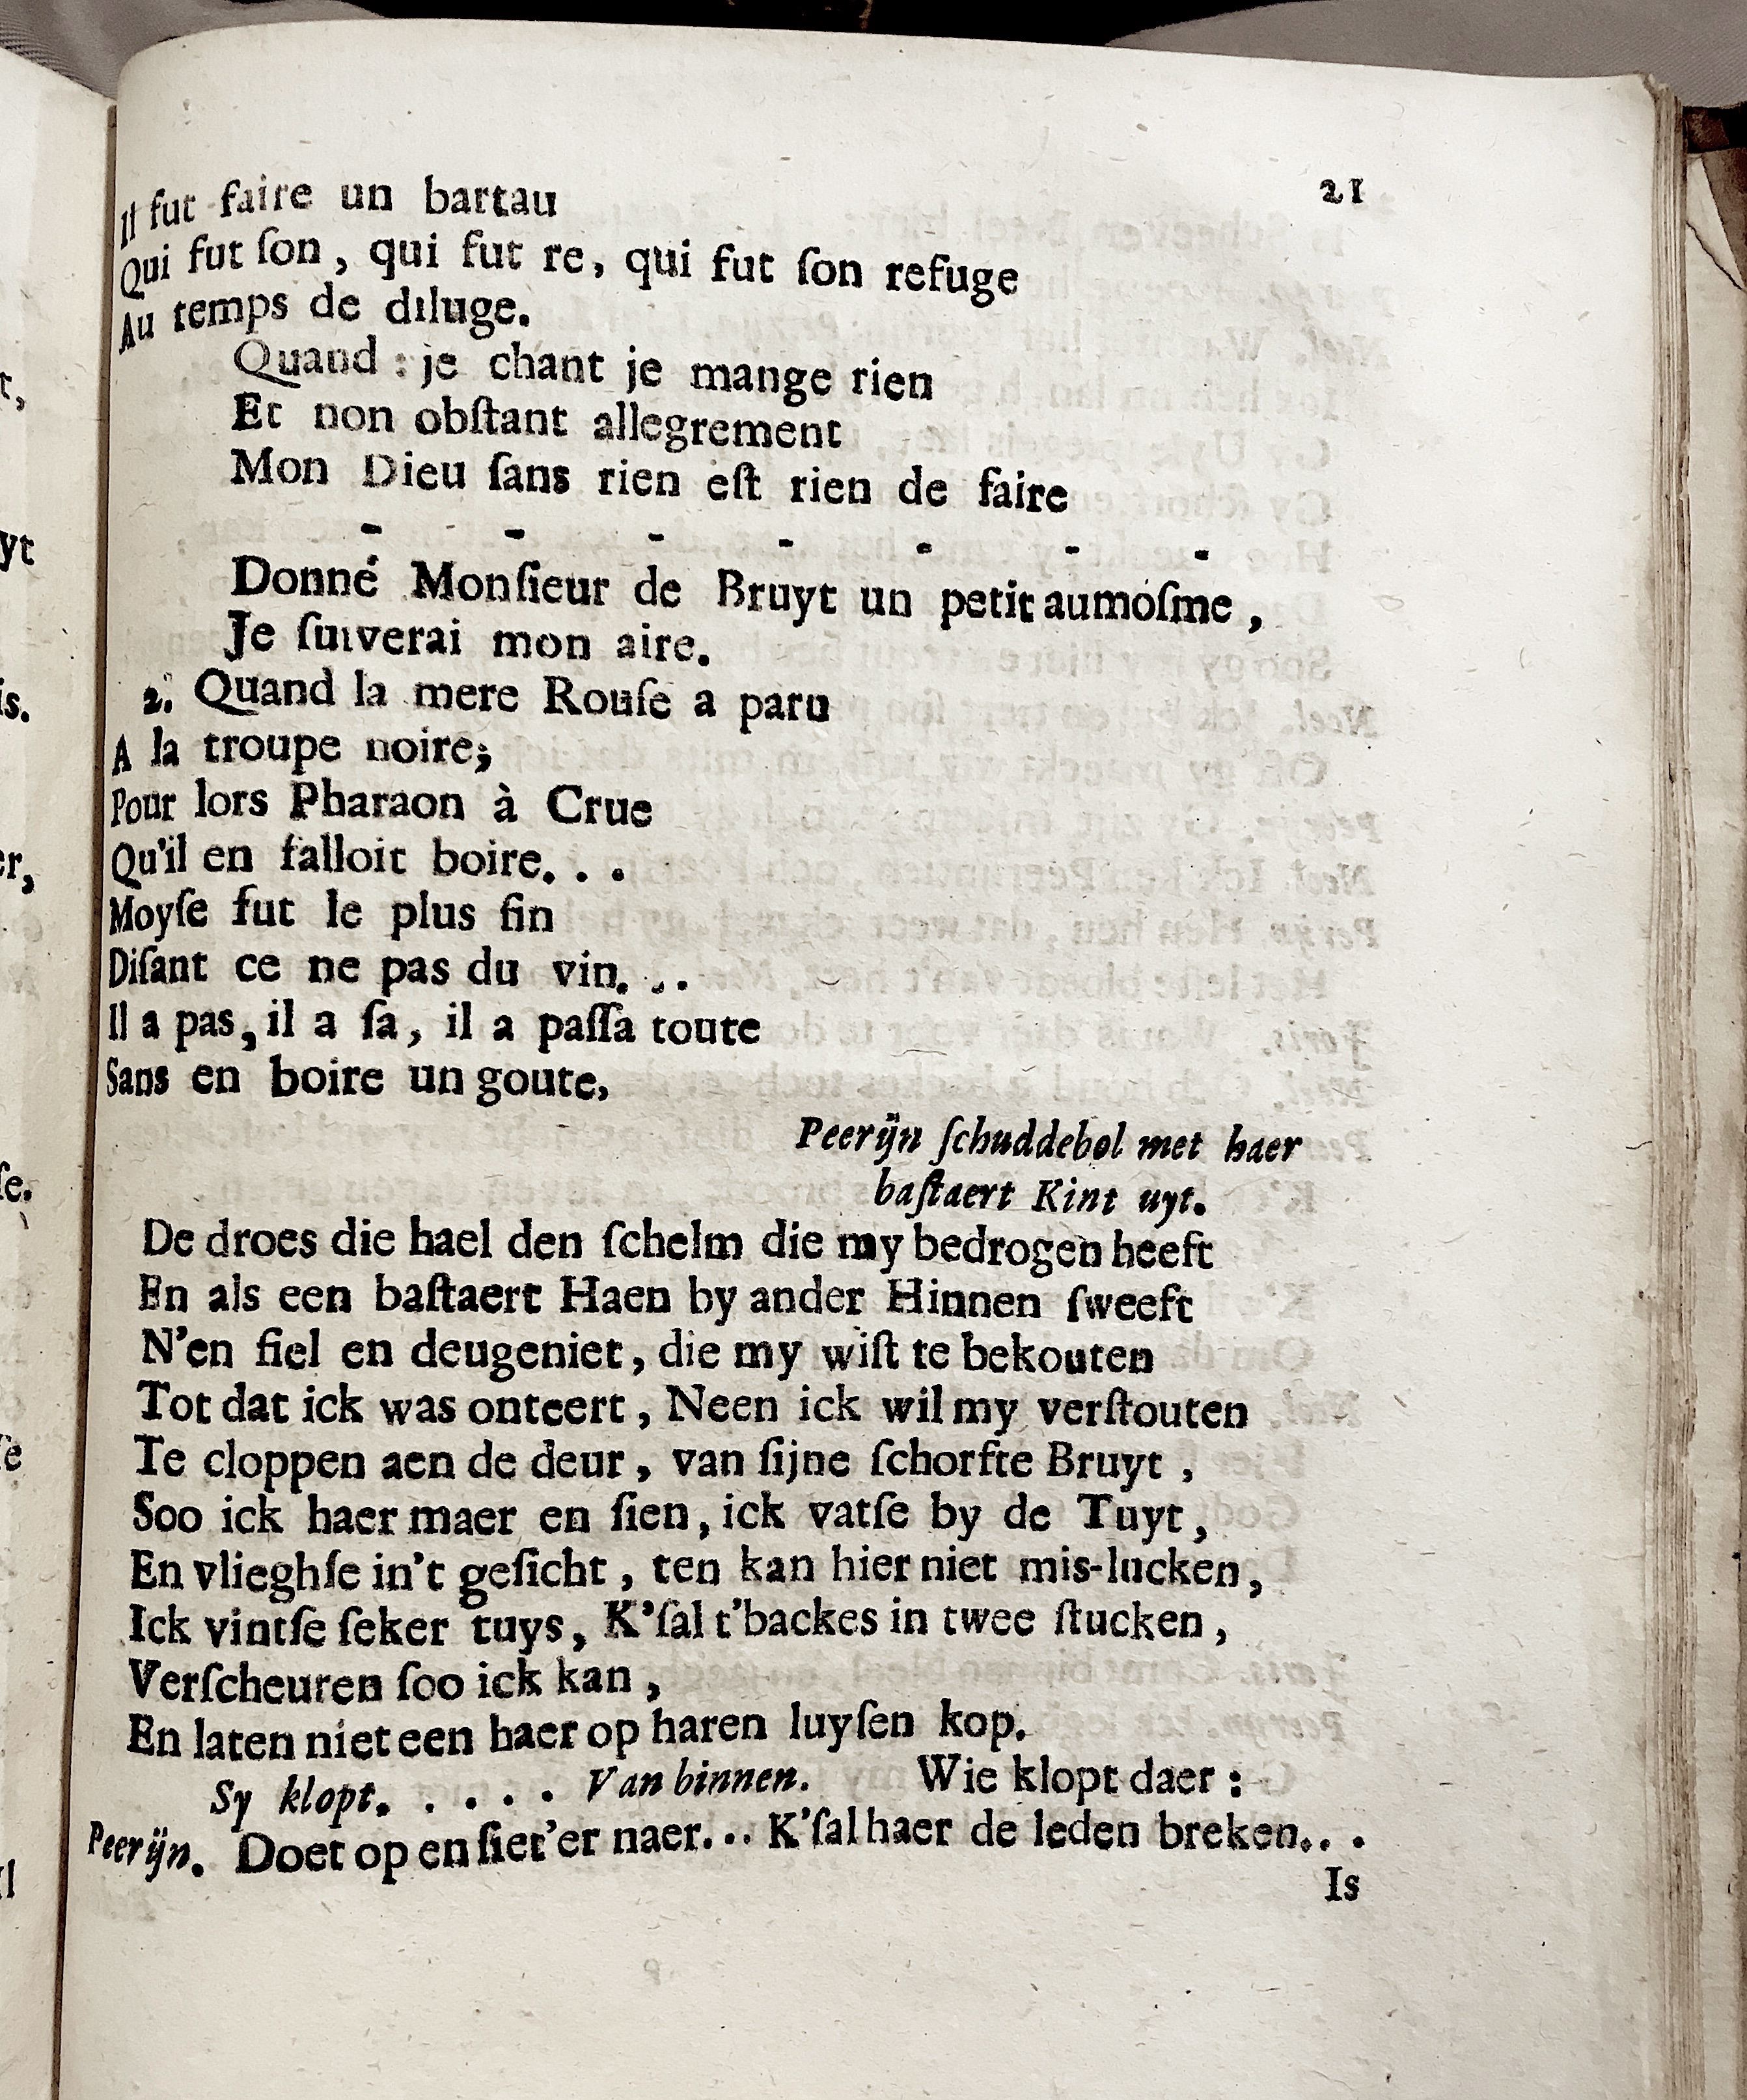 21
Il fut faire un bartau
Qui fut ſon, qui fut re, qui fut ſon refuge
Au temps de diluge.
Quand : je chant je mange rien
Et non obſtant allegrement
Mon Dieu ſans rien eſt rien de faire
- - - - - - -
Donné Monſieur de Bruyt un petit aumoſme,
Je ſuiverai mon aire.
2. Quand la mere Rouſe a paru
A la troupe noire;
Pour lors Pharaon à Crue
Qu'il en falloit boire. . .
Moyſe fut le plus fin
Diſant ce ne pas du vin. . .
Il a pas, il a ſa, il a paſſa toute
Sans en boire un goute,
Peerijn ſchuddebol met haer
baſtaert Kint uyt.
De droes die hael den ſchelm die my bedrogen heeft
En als een baſtaert Haen by ander Hinnen ſweeft
N'en fiel en deugeniet, die my wiſt te bekouten
Tot dat ick was onteert, Neen ick wil my verſtouten
Te cloppen aen de deur, van ſijne ſchorfte Bruyt,
Soo ick haer maer en ſien, ick vatſe by de Tuyt,
En vlieghſe in't geſicht, ten kan hier niet mis-lucken,
Ick vintſe ſeker tuys, K'ſal t'backes in twee ſtucken,
Verſcheuren ſoo ick kan,
En laten niet een haer op haren luyſen kop.
Sy klopt. . . . . Van binnen. Wie klopt daer :
Peerijn. Doet op en ſiet'er naer... K'ſal haer de leden breken...
Is